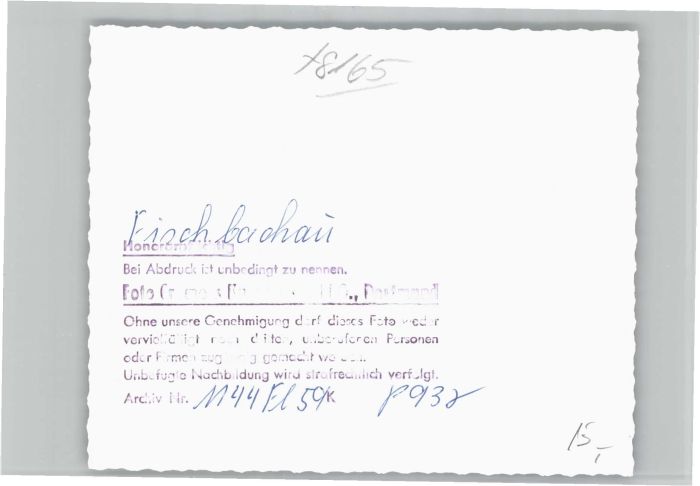 78165
Fischbachau
Honorarpflichtig
Bei Abdruck ist unbedingt zu nennen.
Foto Dortmund
Ohne unsere Genehmigung darf dieses Foto weder
vervielfältigt noch dritten, unberufenen Personen
oder Firmen zugängig gemacht werden.
Unbefugte Nachbildung wird strafrechtlich verfolgt.
Archiv Nr. 1144 Fl 59 K P 932
15,-